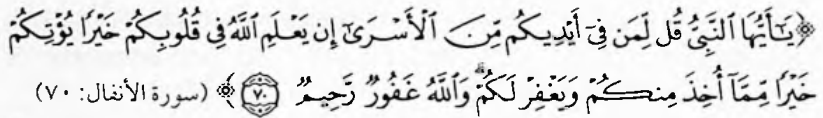 ﴿يَٰٓأَيُّهَا ٱلنَّبِيُّ قُل لِّمَن فِيٓ أَيۡدِيكُم مِّنَ ٱلۡأَسۡرَىٰٓ إِن يَعۡلَمِ ٱللَّهُ فِي قُلُوبِكُمۡ خَيۡرٗا يُؤۡتِكُمۡ
خَيۡرٗا مِّمَّآ أُخِذَ مِنكُمۡ وَيَغۡفِرۡ لَكُمۡۚ وَٱللَّهُ غَفُورٞ رَّحِيمٞ ٧٠﴾ (سورة الأنفال: ٧٠)